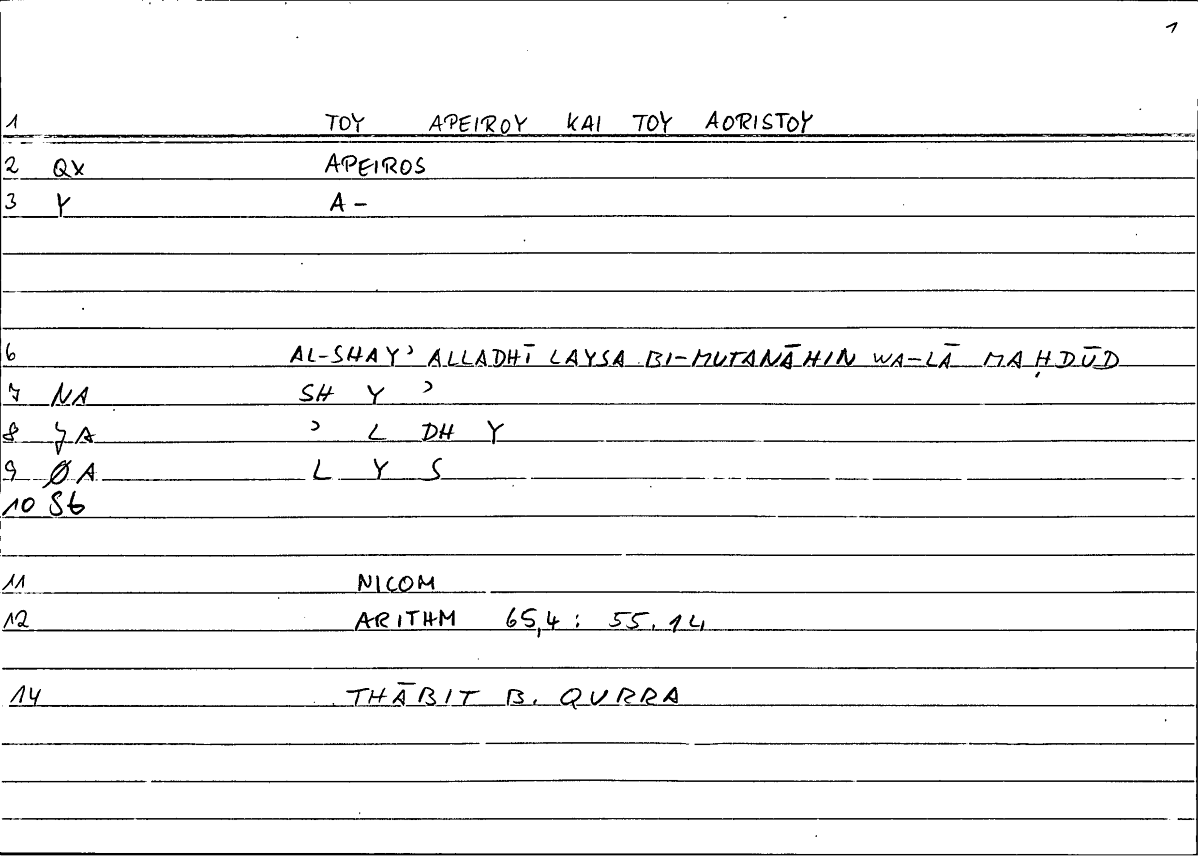 1
1 TOY APEIROY KAI TOY AORISTOY
2 QX APEIROS
3 Y A-
6 AL-SHAYʾ ALLADHĪ LAYSA BI-MUTANĀHIN WA-LĀ MAḤDŪD
7 NA SH Y ʾ
8 A ʾ L DH Y
9 ØA L Y S
10
11 NICOM
12 ARITHM 65,4 : 55.14
14 THĀBIT B. QURRA